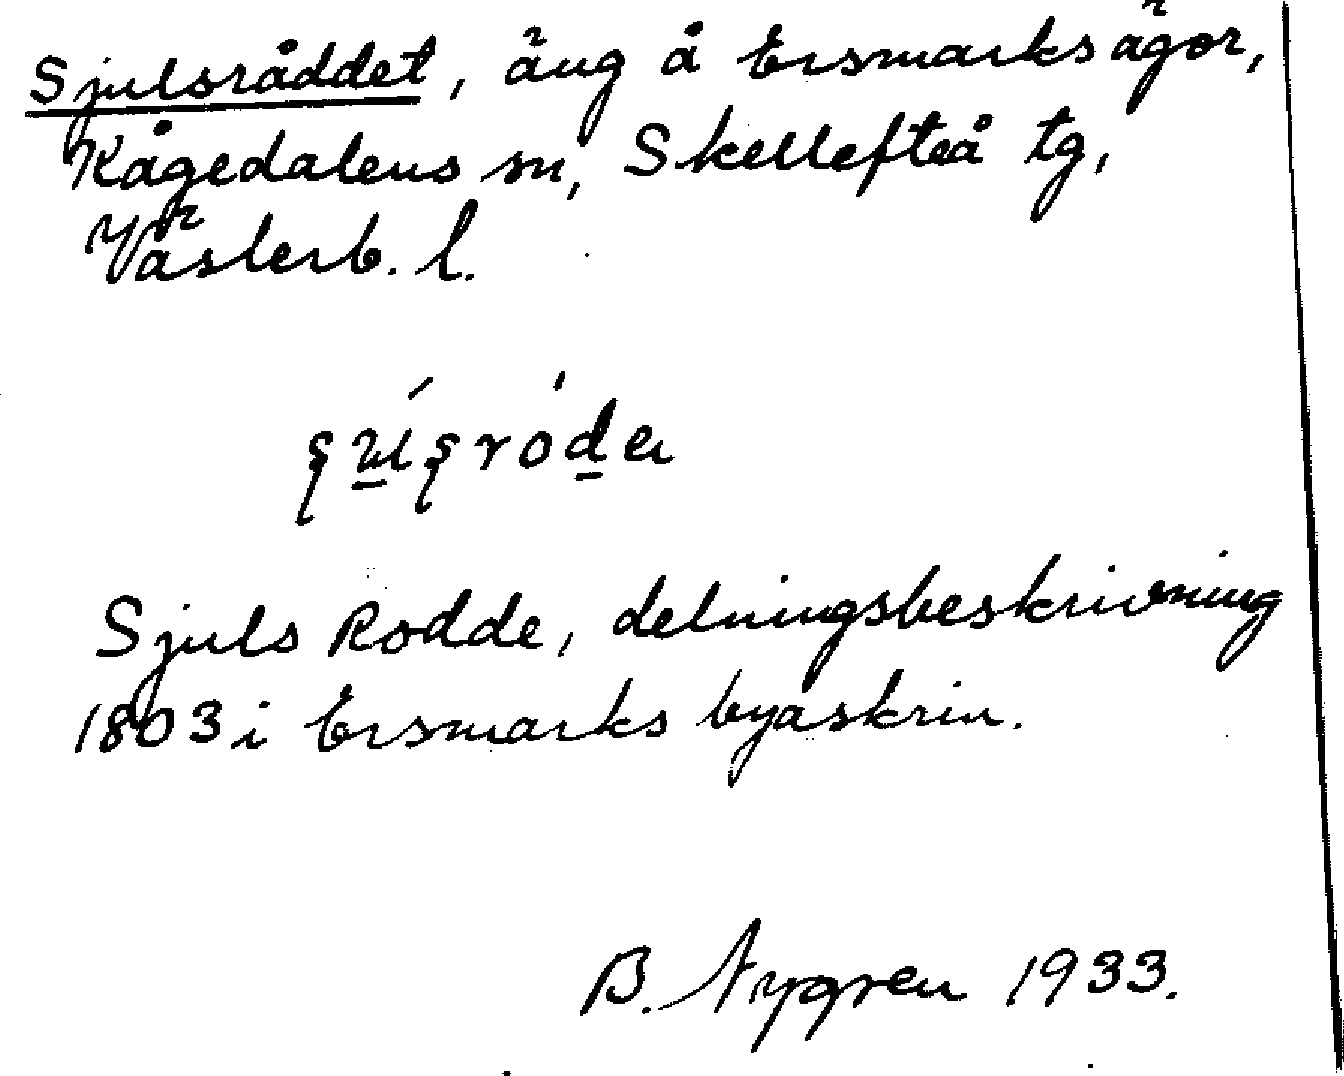 Sjulsråddet, äng å Ersmarks ägor,
Kågedalens sn, Skellefteå tg,
Västerb. l.
Sjuls Rodde, delningsbeskrivning
1803 i Ersmarks byaskrin.
B. Nygren 1933.